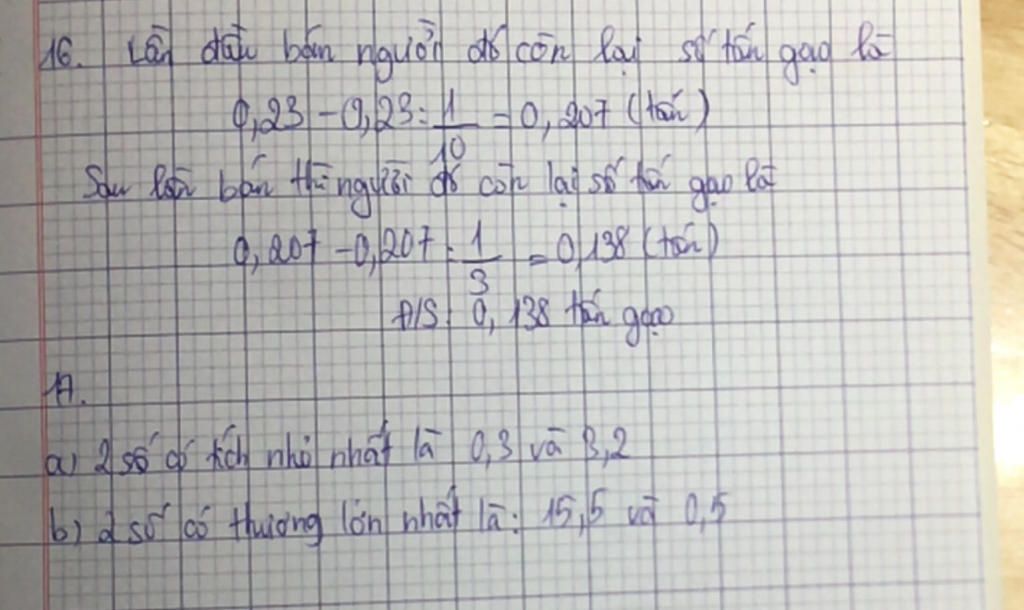 16. Lần đầu bán người đó còn lại số tấn gạo là
0,23 - 0,23 : 1/10 = 0,207 (tấn)
Sau lần bán thì người đó còn lại số tấn gạo là
0,207 - 0,207 . 1/3 = 0,138 (tấn)
Đ/S: 0,138 tấn gạo
17.
a) 2 số có tích nhỏ nhất là 0,3 và 3,2
b) 2 số có thương lớn nhất là: 15,5 và 0,5